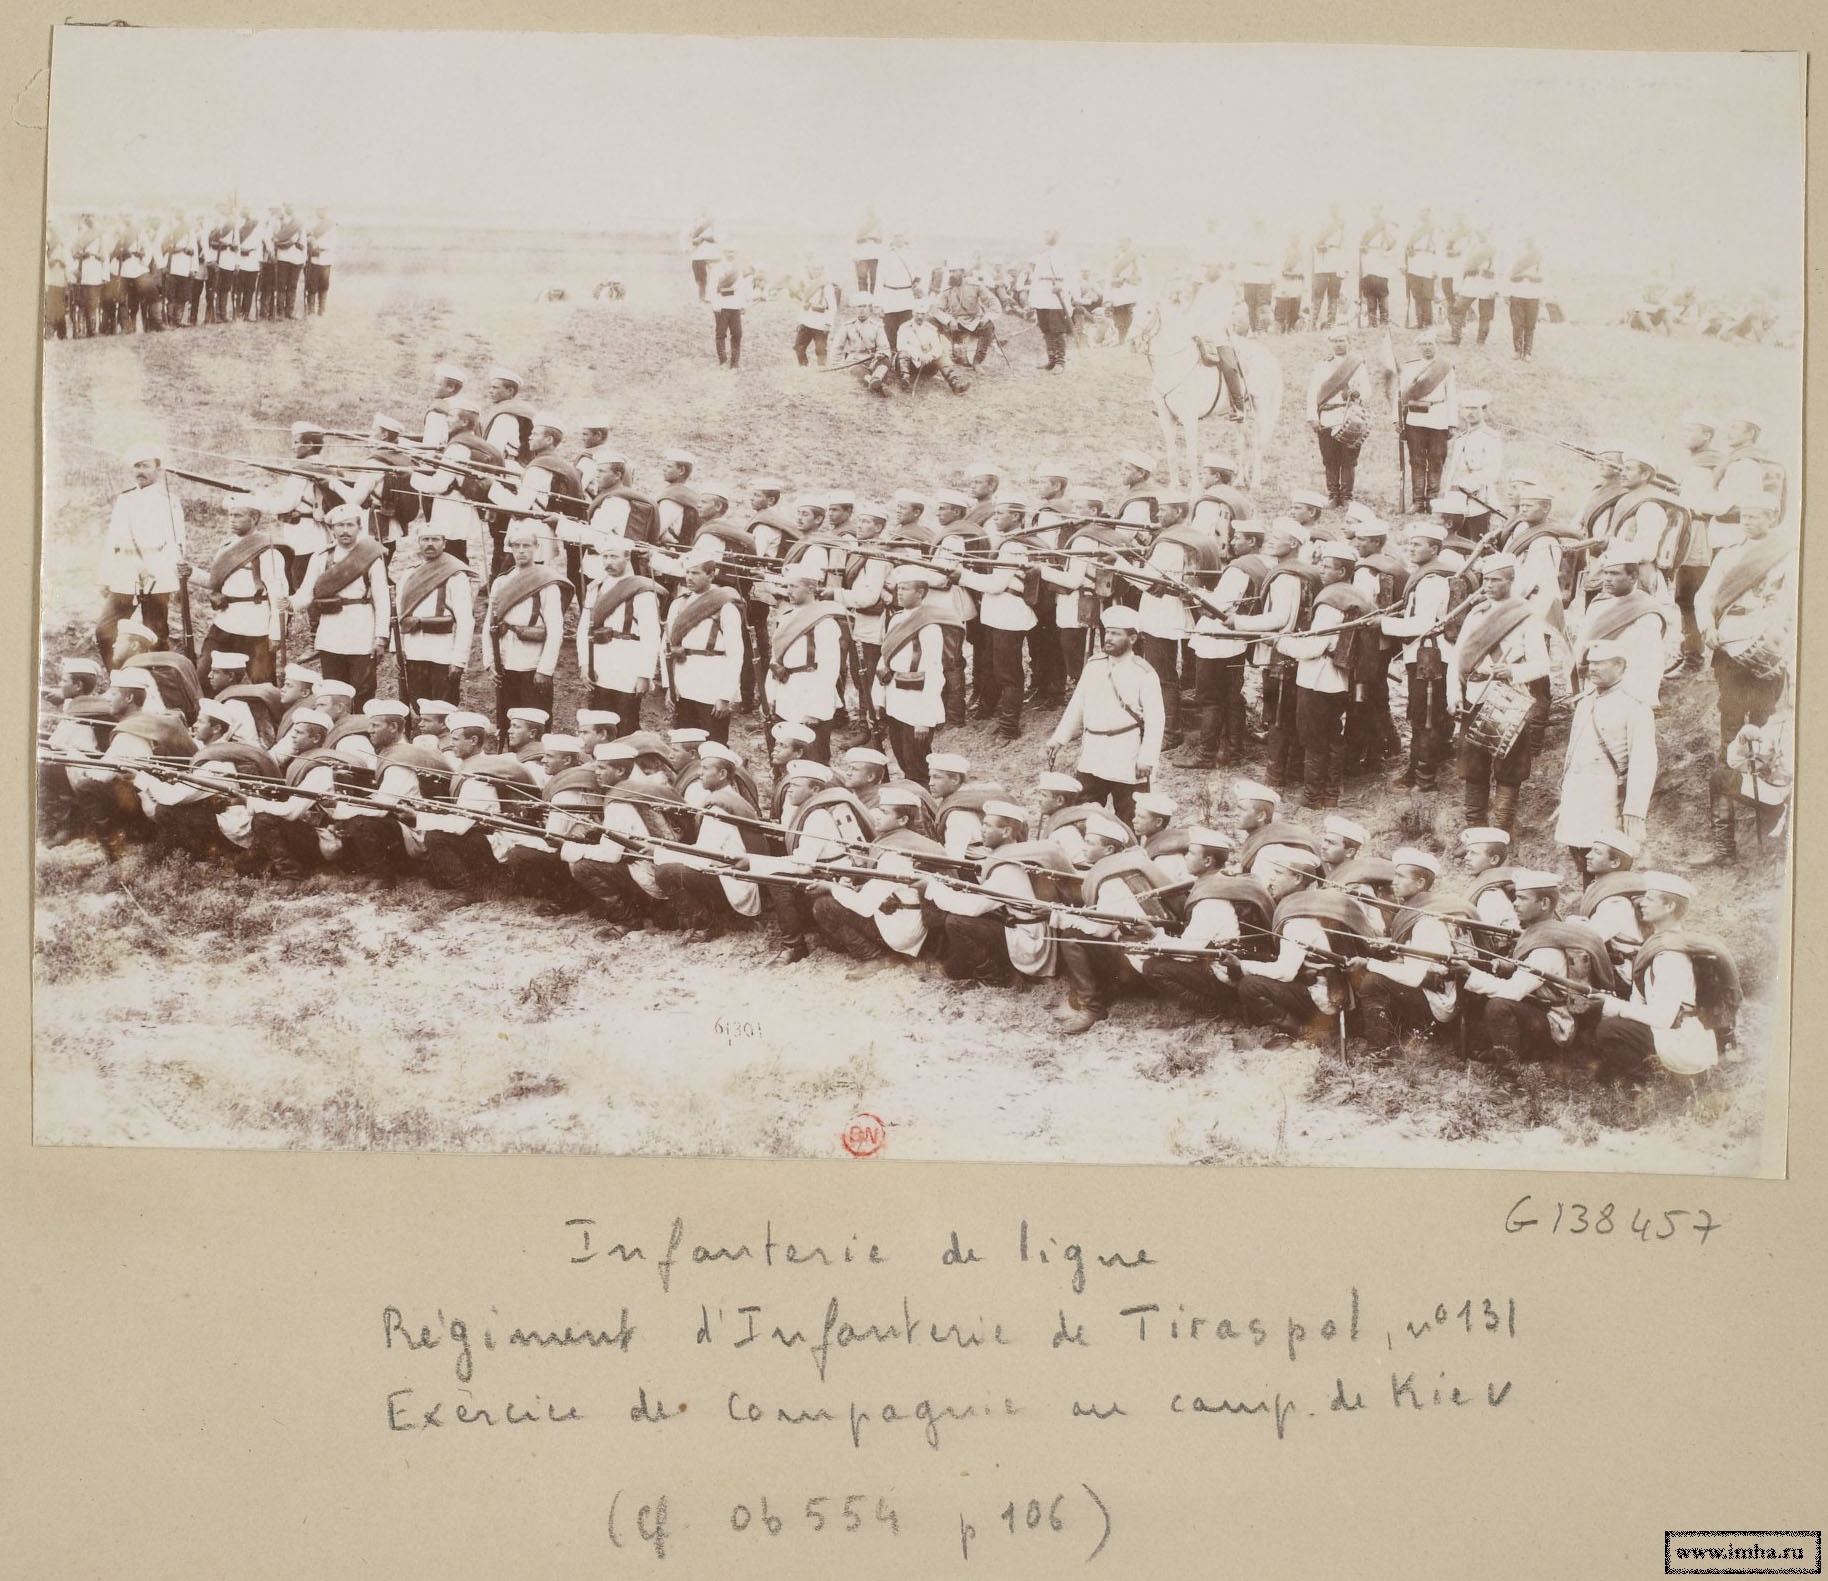 61301
BN
G138457
Infanterie de ligne
Régiment d'Infanterie de Tiraspol, nº 131
Exercice de Compagnie au camp de Kiev
(cf. Ob 554 p 106)
www.imha.ru